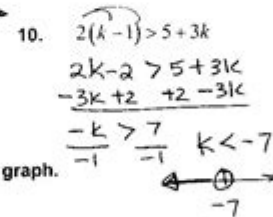 10. 2(k-1)>5+3k
2k-2 > 5+3k
-3k +2 +2 -3k
-k > 7 k < -7
-1 -1
graph.
-7